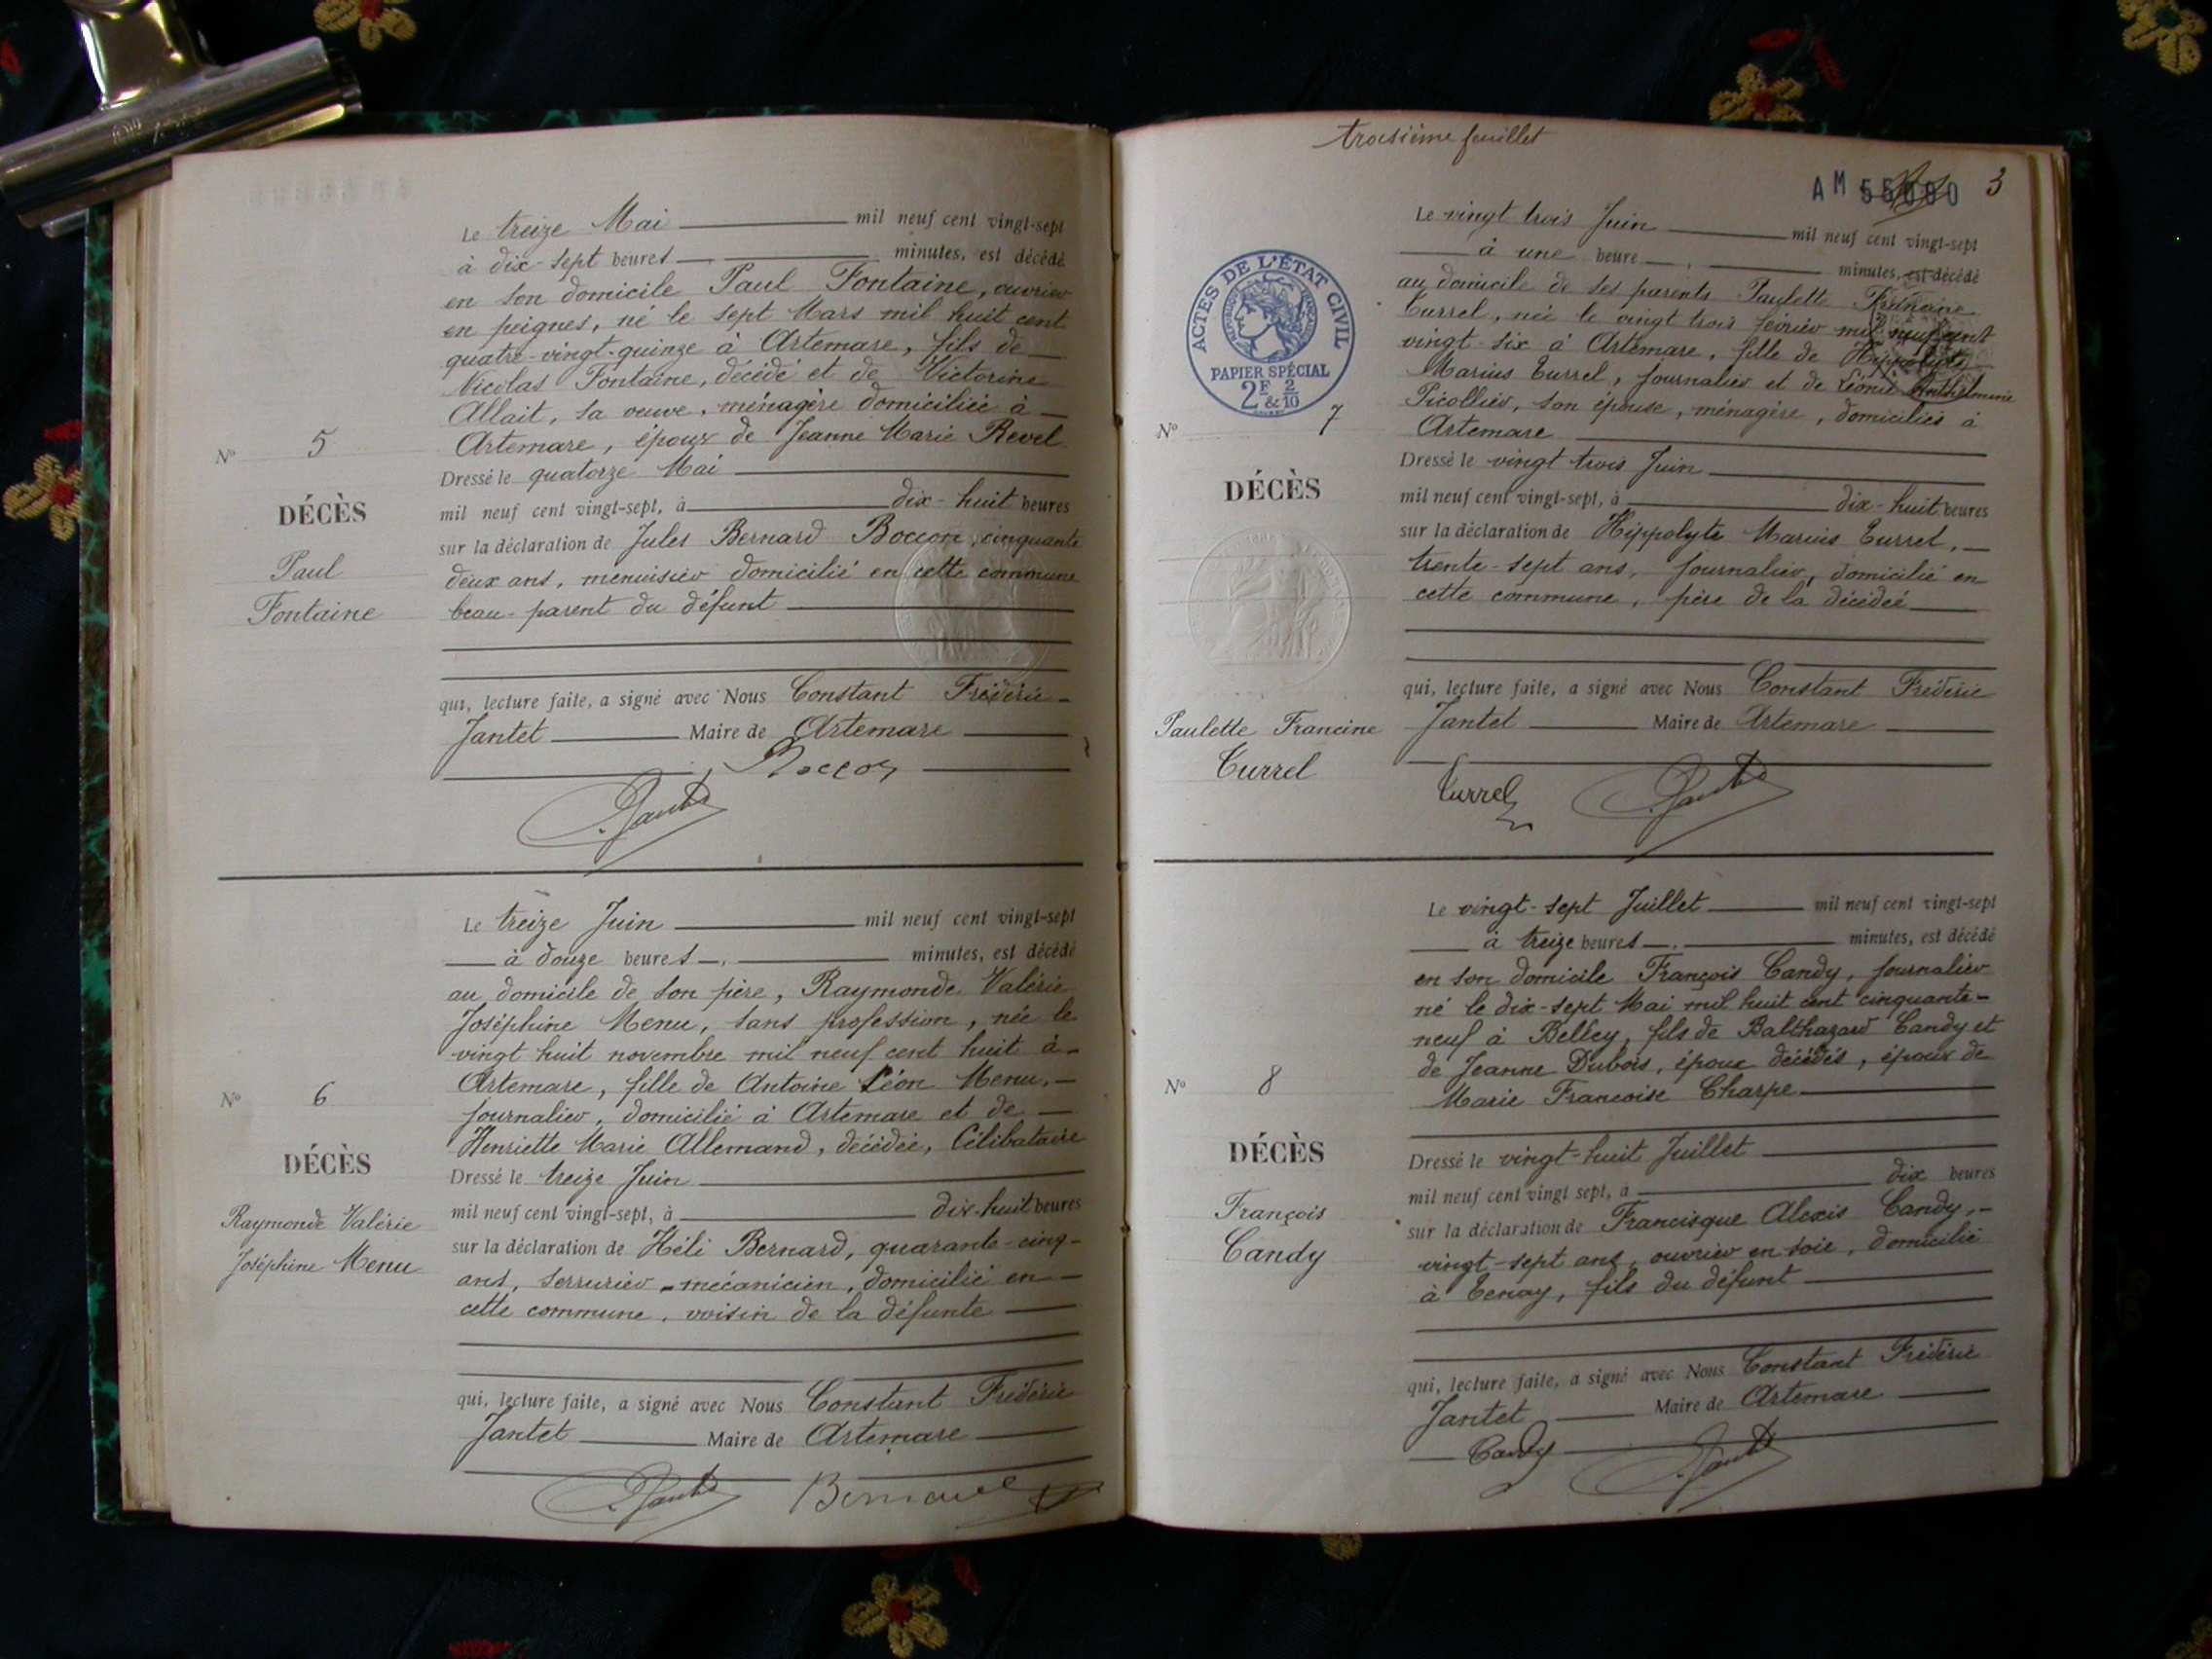 Le treize Mai mil neuf cent vingt-sept
à dix-sept heures minutes, est décédé
en son domicile Paul Fontaine, ouvrier
en peignes, né le sept Mars mil huit cent
quatre-vingt-quinze à Artemare, fils de
Nicolas Fontaine, décédé et de Victorine
Allait, sa veuve, ménagère domiciliée à
Artemare, époux de Jeanne Marie Revel
Dressé le quatorze Mai
mil neuf cent vingt-sept, à dix-huit heures
sur la déclaration de Jules Bernard Boccon, cinquante
deux ans, menuisier domicilié en cette commune
beau-parent du défunt
qui, lecture faite, a signé avec Nous Constant Frédéric
Jantet Maire de Artemare
Boccon
Jantet
No 5
DÉCÈS
Paul
Fontaine
Le treize Juin mil neuf cent vingt-sept
à douze heures minutes, est décédé
au domicile de son père, Raymonde Valérie
Joséphine Menu, sans profession, née le
vingt huit novembre mil neuf cent huit à
Artemare, fille de Antoine Léon Menu,
journalier, domicilié à Artemare et de
Henriette Marie Allemand, décédée, Célibataire
Dressé le treize Juin
mil neuf cent vingt-sept, à dix-huit heures
sur la déclaration de Héli Bernard, quarante-cinq
ans, serrurier-mécanicien, domicilié en
cette commune, voisin de la défunte
qui, lecture faite, a signé avec Nous Constant Frédéric
Jantet Maire de Artemare
Jantet Bernard
No 6
DÉCÈS
Raymonde Valérie
Joséphine Menu
troisième feuillet
AM 3
ACTES DE L'ÉTAT CIVIL
RÉPUBLIQUE FRANÇAISE
PAPIER SPÉCIAL
2F & 2/10
Le vingt trois Juin mil neuf cent vingt-sept
à une heure minutes, est décédé
au domicile de ses parents Paulette Francine
Turrel, née le vingt trois février mil neuf cent
vingt-six à Artemare, fille de Hippolyte
Marius Turrel, journalier et de Léonie Anthelmine
Picollier, son épouse, ménagère, domiciliés à
Artemare
Dressé le vingt trois Juin
mil neuf cent vingt-sept, à dix-huit heures
sur la déclaration de Hippolyte Marius Turrel,
trente-sept ans, journalier, domicilié en
cette commune, père de la décédée
qui, lecture faite, a signé avec Nous Constant Frédéric
Jantet Maire de Artemare
Turrel Jantet
No 7
DÉCÈS
Paulette Francine
Turrel
Le vingt-sept Juillet mil neuf cent vingt-sept
à treize heures minutes, est décédé
en son domicile François Candy, journalier
né le dix-sept Mai mil huit cent cinquante-
neuf à Belley, fils de Balthazard Candy et
de Jeanne Dubois, époux décédés, époux de
Marie Francoise Charpe
Dressé le vingt-huit Juillet
mil neuf cent vingt sept, à dix heures
sur la déclaration de Francisque Alexis Candy,
vingt-sept ans, ouvrier en soie, domicilié
à Tenay, fils du défunt
qui, lecture faite, a signé avec Nous Constant Frédéric
Jantet Maire de Artemare
Candy Jantet
No 8
DÉCÈS
François
Candy